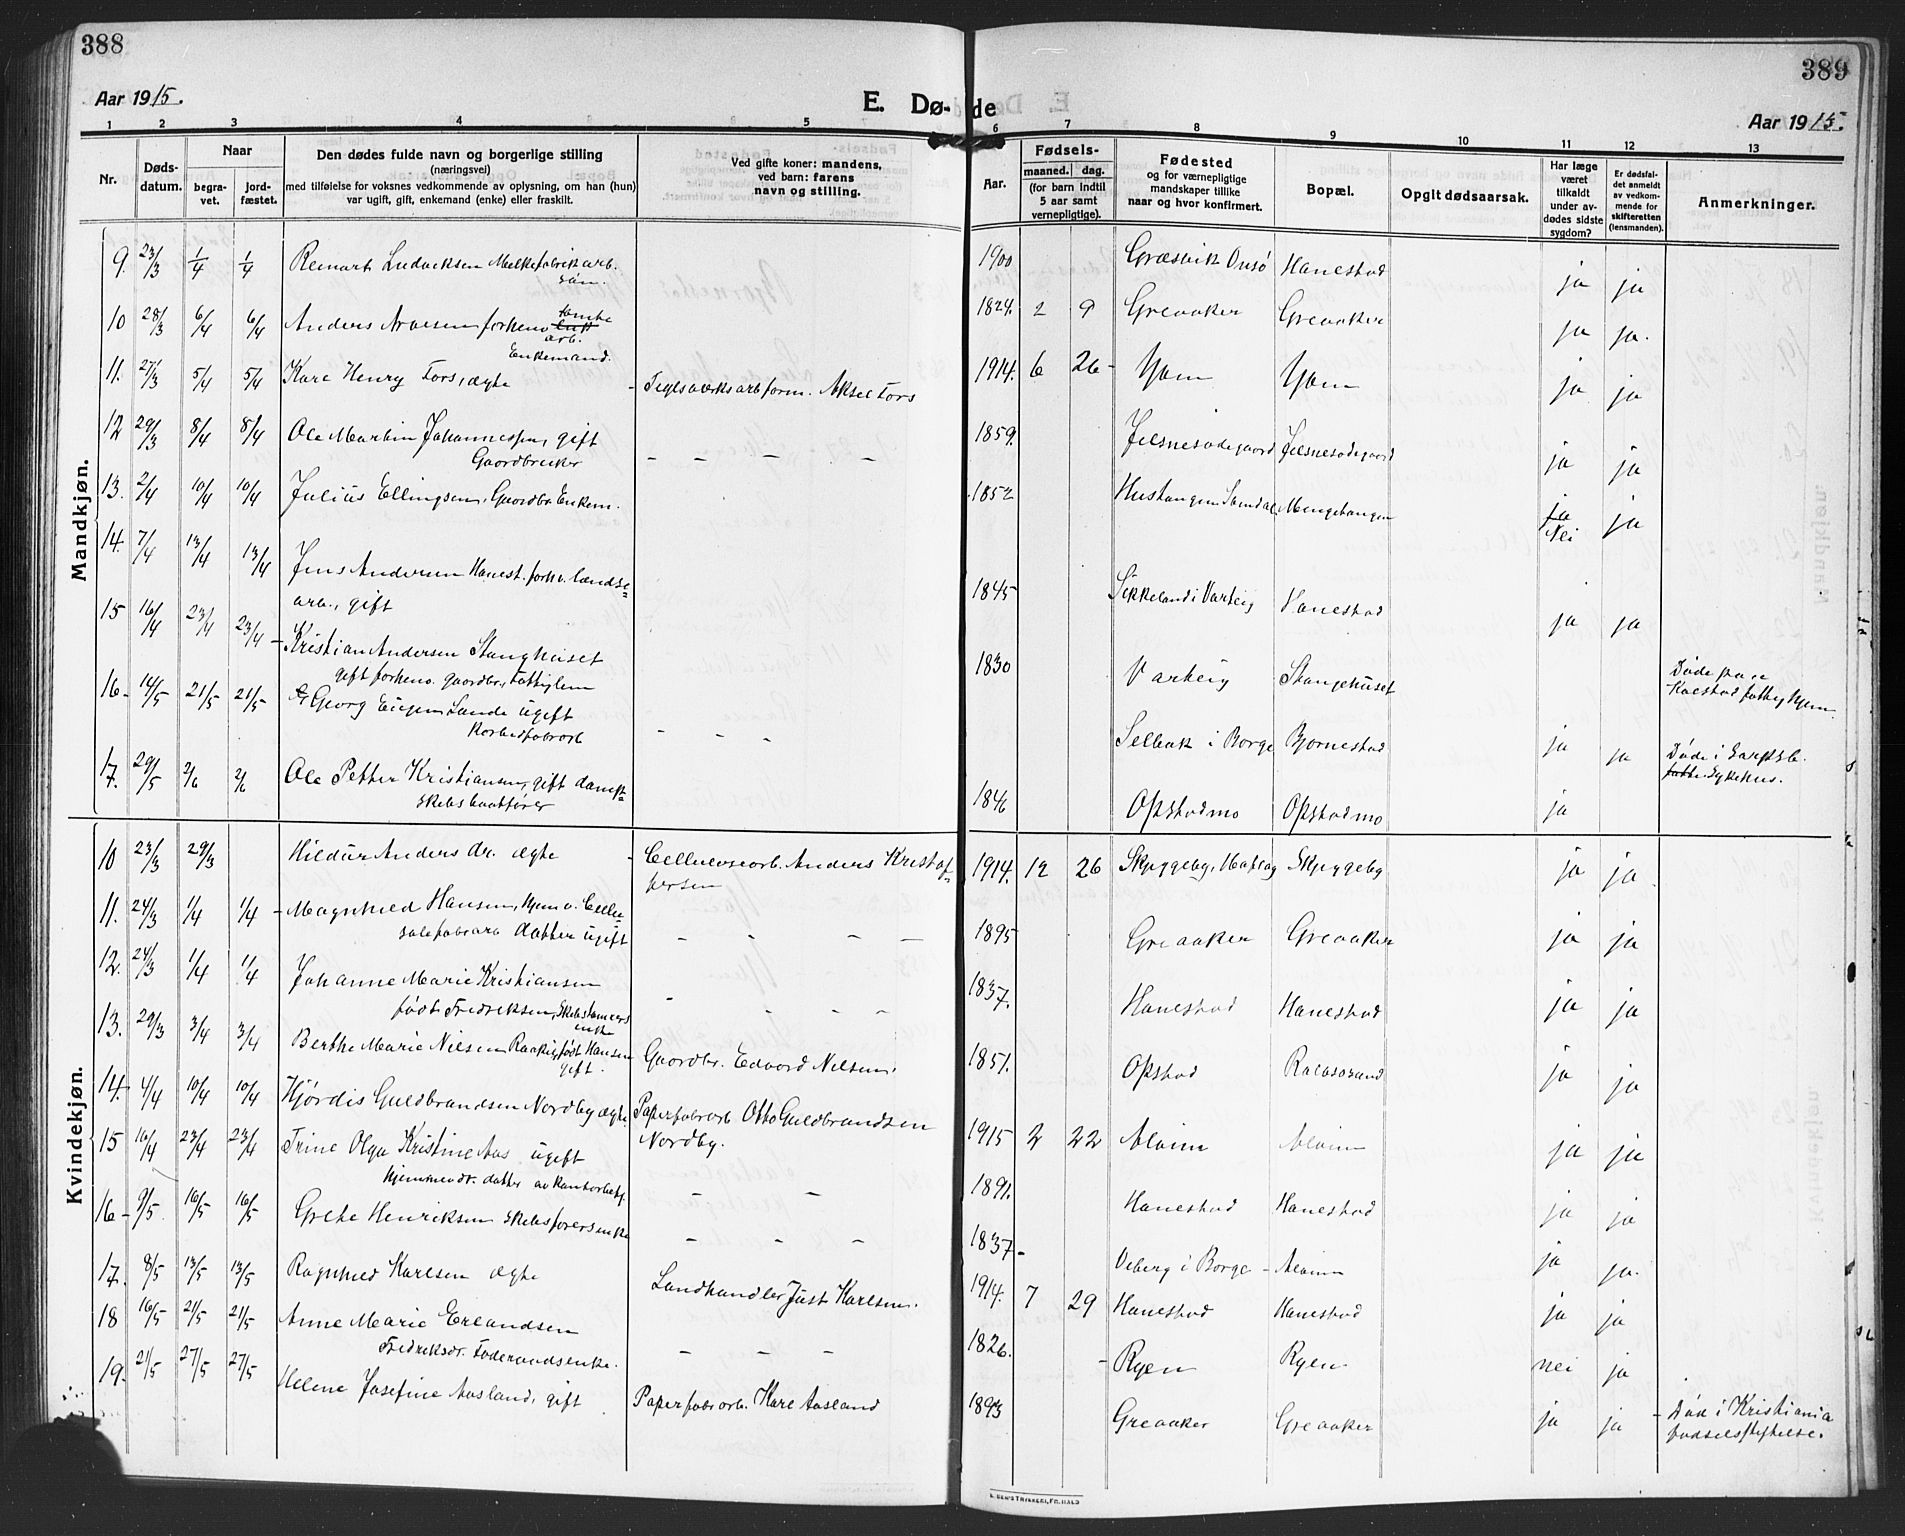 388
389
Aar 1915.
E. Dø-
de
Aar 1915.
1 2 3 4 5 6 7 8 9 10 11 12 13
Nr.
Døds-
datum.
Naar
begra-
vet.
jord-
fæstet.
Den dødes fulde navn og borgerlige stilling
(næringsvei)
med tilføielse for voksnes vedkommende av oplysning, om han (hun)
var ugift, gift, enkemand (enke) eller fraskilt.
Ved gifte koner: mandens,
ved barn: farens
navn og stilling.
Aar.
Fødsels-
maaned. dag.
(for barn indtil
5 aar samt
vernepligtige).
Fødested
og for værnepligtige
mandskaper tillike
naar og hvor konfirmert.
Bopæl.
Opgit dødsaarsak.
Har læge
været
tilkaldt
under av-
dødes sidste
sygdom?
Er dødsfal-
det anmeldt
av vedkom-
mende for
skifteretten
(lensmanden).
Anmerkninger.
Mandkjøn.
9. 23/3 1/4 1/4 Reinart Ludviksen Melkefabrikarb. søn. 1900 Græsvik Onsø Hanestad ja ja
10 28/3 6/4 6/4 Anders Arvesen forhenv. tomte arb. Enkemand. 1824. 2 9 Greaaker Greaaker ja ja.
11. 27/3 5/4 5/4 Kare Henry Fors, ægte - Teglverksarbform. Aksel Fors 1914. 6 26 - Yven Yven ja ja
12 29/3 8/4 8/4 Ole Martin Johannessen, gift Gaardbruker - - - - 1859. Jelsnesødegaard Jelsnesødegaard ja ja
13. 2/4 10/4 10/4 Julius Ellingsen, Gaardbr. Enkem. 1852 Hustangen Sandal Mengehangen ja Nei ja
14. 7/4 13/4 13/4 Jens Andersen Hanest. forhv. lændse= arb., gift 1845 Sikkeland i Varteig Hanestad ja ja
15 16/4 23/4 23/4 - Kristian Andersen Stanghuset gift forhenv. Gaardbr., Fattiglem 1830 Varteig Stangehuset Døde paa Kaestad fattighjem.
16 - 14/5 21/5 21/5 Georg Eugen Lande ugift Karbidfabrarb - - - Selbak i Borge Bjørnestad ja ja Døde i Sarpsb. Sykehus.
17. 29/5 2/6 2/6 Ole Petter Kristiansen, gift damp= skibsbaatfører 1846 Opstadmo Opstadmo ja
Kvindekjøn.
10 23/3 29/3 Hildur Anders dr. ægte - Cellulosearb. Anders Kristof= fersen 1914. 12 26 Skjyggeby, Hafslag Skjyggeby ja ja
11. 24/3 1/4 1/4 - Magnhild Hansen, hjem v. Cellu= losefabrarb datter ugift - - - - 1895 Greaaker Greaaker ja ja
12. 24/3 1/4 1/4 Johanne Marie Kristiansen født Fredriksen, Skibstømmers enke - - - - 1837. Hanestad Hanestad ja ja
13. 29/3 3/4 3/4 Berthe Marie Nilsen Raakig, født Hansen gift. Gaardbr. Edvard Nilsen. 1851. Opstad Ralasosand ja ja
14. 4/4 10/4 10/4 Hjørdis Guldbrandsen Nordby ægte Papirfabrarb Otto Guldbrandsen Nordby. 1915 2 22 Alvim Alvim ja ja
15 16/4 23/4 23/4 Trine Olga Kristine Aas ugift hjemmevær. datter av kantorbetj. - - 1891. Hanestad Hanestad ja ja
16 - 9/5 16/5 16/5 Grethe Henriksen skibsførersenke - - - 1837 - Veberg i Borge - Alvim ja ja.
17. 8/5 13/5 13/5 Ragnhild Karlsen ægte Landhandler Just Karlsen. 1914. 7 29 Hanestad Hanestad ja ja
18 16/5 21/5 21/5 Anne Marie Erlandsen Fredriksdr. Føderaadsenke. - - - 1826. - Ryen Ryen nei ja
19. 21/5 27/5 27/5 Helene Josefine Aasland, gift Papirfabrarb. Karl Aasland 1893 Greaaker Greaaker ja ja - Død i Kristiania fødselsstiftelse.